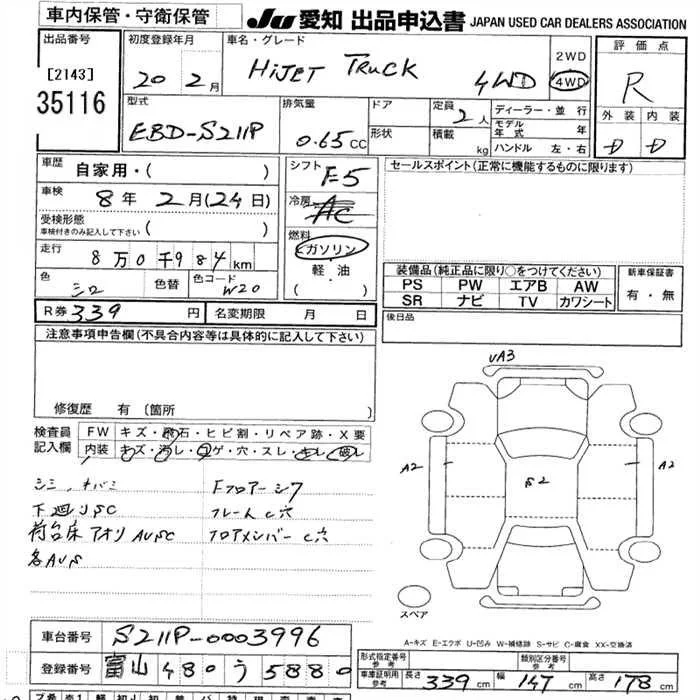 車内保管・守衛保管
JU 愛知 出品申込書 JAPAN USED CAR DEALERS ASSOCIATION
出品番号
[2143]
35116
初度登録年月
20 2月
車名・グレード
HIJET TRUCK 4WD
2WD
4WD
評価点
R
外装 内装
D D
型式
EBD-S211P
排気量
0.65 CC
ドア
形状
定員
2人
積載
kg
ディーラー・並行
モデル年式 年
ハンドル 左・右
車歴
自家用・( )
車検
8年 2月(24日)
受検形態
車検付きのみ記入して下さい ( )
走行
8万0千984km
色
シロ
色替
色コード
W20
シフト
F5
冷房
AC
燃料
ガソリン
軽油
( )
セールスポイント(正常に機能するものに限ります)
装備品(純正品に限り○をつけてください)
PS PW エアB AW
SR ナビ TV カワシート
新車保証書
有・無
後日品
R券 339円
名変期限 月 日
注意事項申告欄(不具合内容等は具体的に記入して下さい)
修復歴 有〔箇所 〕
検査員記入欄
FW キズ・飛石・ヒビ割・リペア跡・X要
内装 キズ・汚レ・コゲ・穴・スレ・キレ・破レ
シミ、ネバミ
下廻りSC
荷台床アオリAUSC
各AUS
Fフロアーシワ
フレームC穴
フロアメンバーC穴
UA3
A2
S2
A2
スペア
A-キズ E-エクボ U-凹み W-補修跡 S-サビ C-腐食 XX-交換済
車台番号
S211P-0003996
登録番号
富山 480 う 5880
形式指定番号 参考
類別区分番号 参考
車庫証明用 参考
長さ 339cm
幅 147cm
高さ 178cm